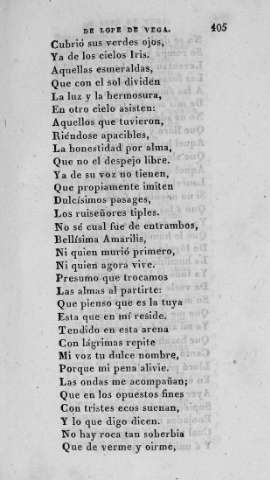 DE LOPE DE VEGA. 405
Cubrió sus verdes ojos,
Ya de los cielos Iris.
Aquellas esmeraldas,
Que con el sol dividen
La luz y la hermosura,
En otro cielo asisten:
Aquellos que tuvieron,
Riéndose apacibles,
La honestidad por alma,
Que no el despejo libre.
Ya de su voz no tienen,
Que propiamente imiten
Dulcísimos pasages,
Los ruiseñores tiples.
No sé cual fue de entrambos,
Bellísima Amarilis,
Ni quien murió primero,
Ni quien agora vive.
Presumo que trocamos
Las almas al partirte:
Que pienso que es la tuya
Esta que en mí reside.
Tendido en esta arena
Con lágrimas repite
Mi voz tu dulce nombre,
Porque mi pena alivie.
Las ondas me acompañan;
Que en los opuestos fines
Con tristes ecos suenan,
Y lo que digo dicen.
No hay roca tan soberbia
Que de verme y oirme,